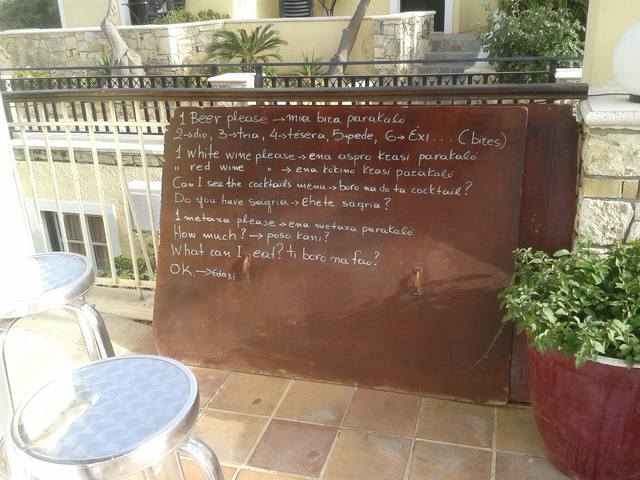 1 Beer please → mia bira parakaló
2→dio, 3→tria, 4→tésera, 5→pede, 6→Éxi... (bires)
1 white wine please → ena aspro krasi parakaló
" red wine " → ena kókino krasi parakaló
Can I see the cocktails menu → boro na do ta cocktail?
Do you have sagria → Ehete sagria?
1 metaxa please → ena metaxa parakaló
How much? → poso káni?
What can I eat? ti boro na fao?
OK → Edaxi